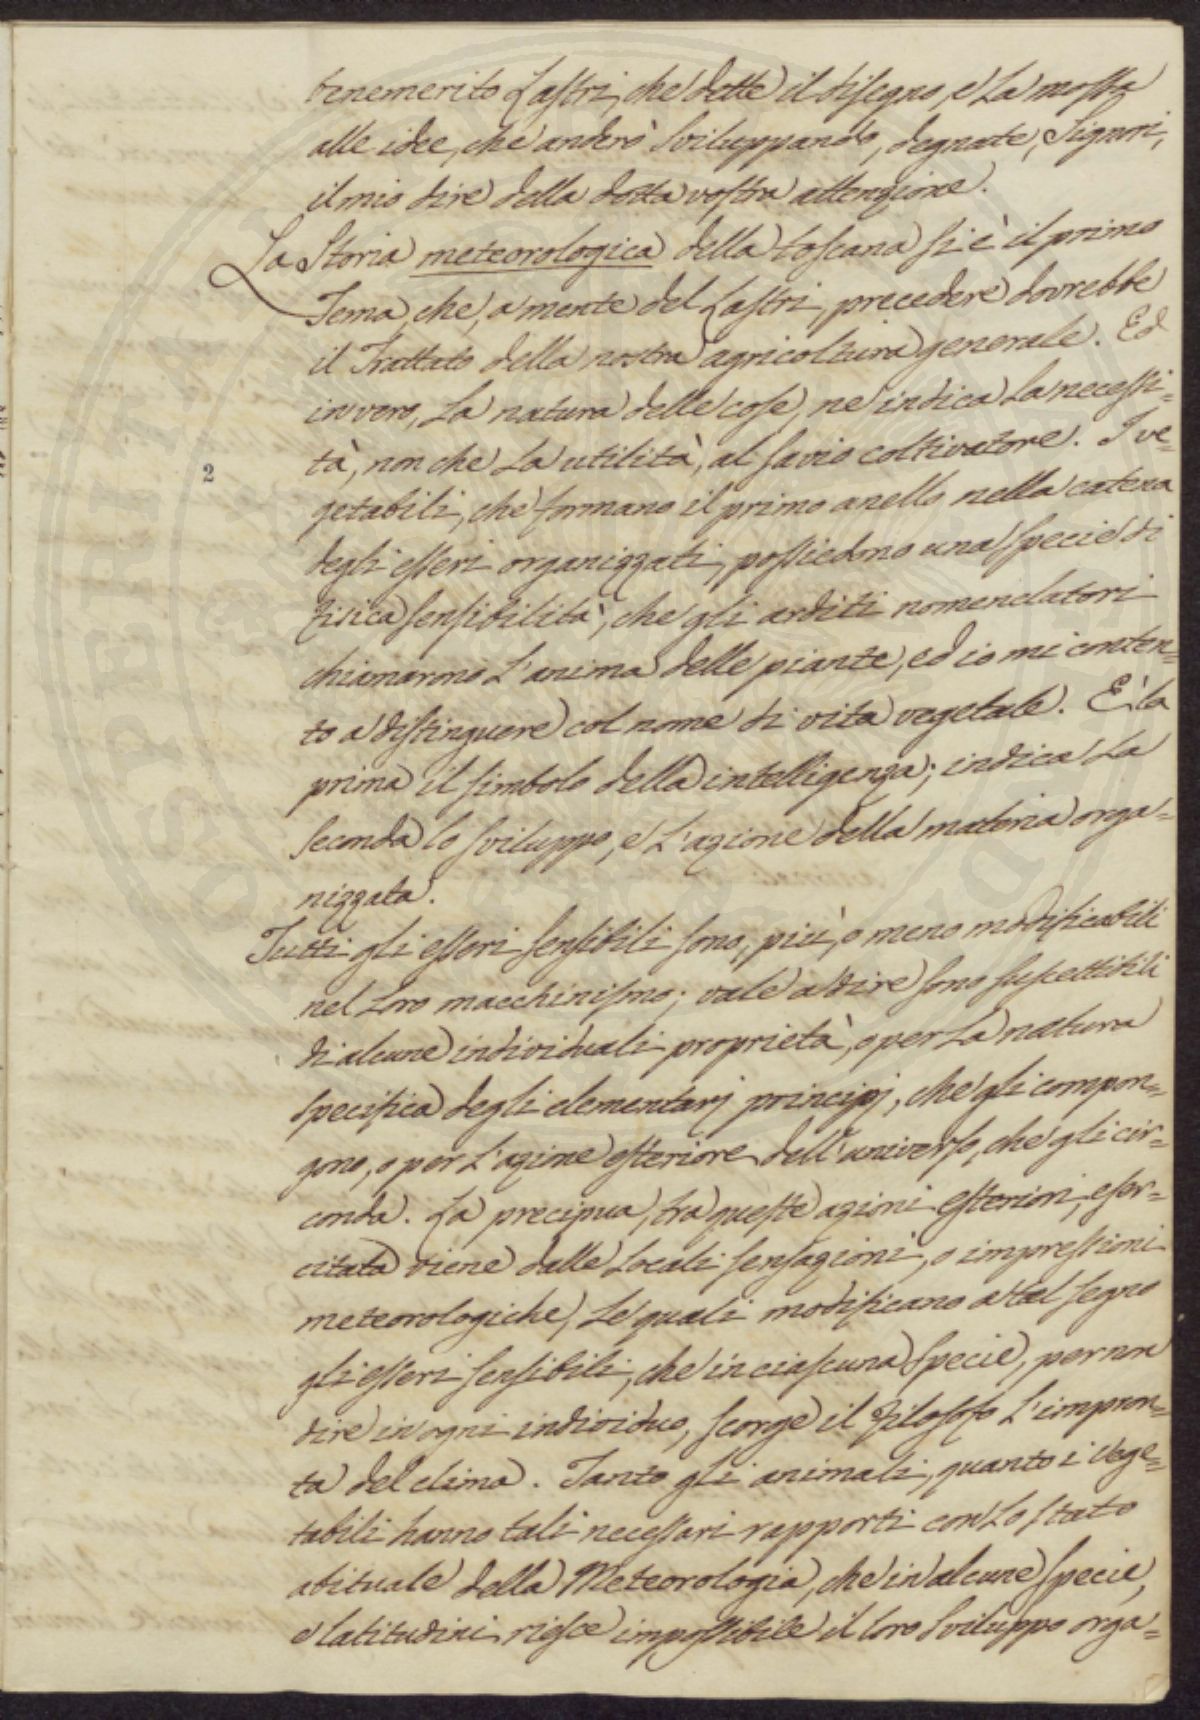 benemerito Lastri, che dette il disegno, e la mossa
alle idee, che anderò sviluppando, degnate, Signori,
il mio dire della dotta vostra attenzione.
La Storia meteorologica della toscana si è il primo
Tema, che, a mente del Lastri, precedere dovrebbe
il Trattato della nostra agricoltura generale. Ed
invero, la natura delle cose, ne indica la necessi=
tà, non che la utilità, al savio coltivatore. I ve=
2
getabili, che formano il primo anello nella catena
degli esseri organizzati, possiedono una specie di
fisica sensibilità, che gli arditi nomenclatori
chiamarono l'anima delle piante, ed io mi conten=
to a distinguere col nome di vita vegetale. È la
prima il simbolo della intelligenza; indica la
seconda lo sviluppo, e l'azione della materia orga=
nizzata.
Tutti gli esseri sensibili sono, più, o meno modificabili
nel loro macchinismo; vale a dire sono suscettibili
di alcune individuali proprietà, o per la natura
specifica degli elementarj principj, che gli compon=
gono, o per l'azione esteriore dell'universo, che gli cir=
conda. La precipua, tra queste azioni esteriori, eser=
citata viene dalle locali sensazioni, o impressioni
meteorologiche, le quali modificano a tal segno
gli esseri sensibili, che in ciascuna specie, per non
dire in ogni individuo, scorge il filosofo l'impron=
ta del clima. Tanto gli animali, quanto i vege=
tabili hanno tali necessari rapporti con lo stato
abituale della Meteorologia, che in alcune specie,
e latitudini riesce impossibile il loro sviluppo orga=
OSPERITÀ